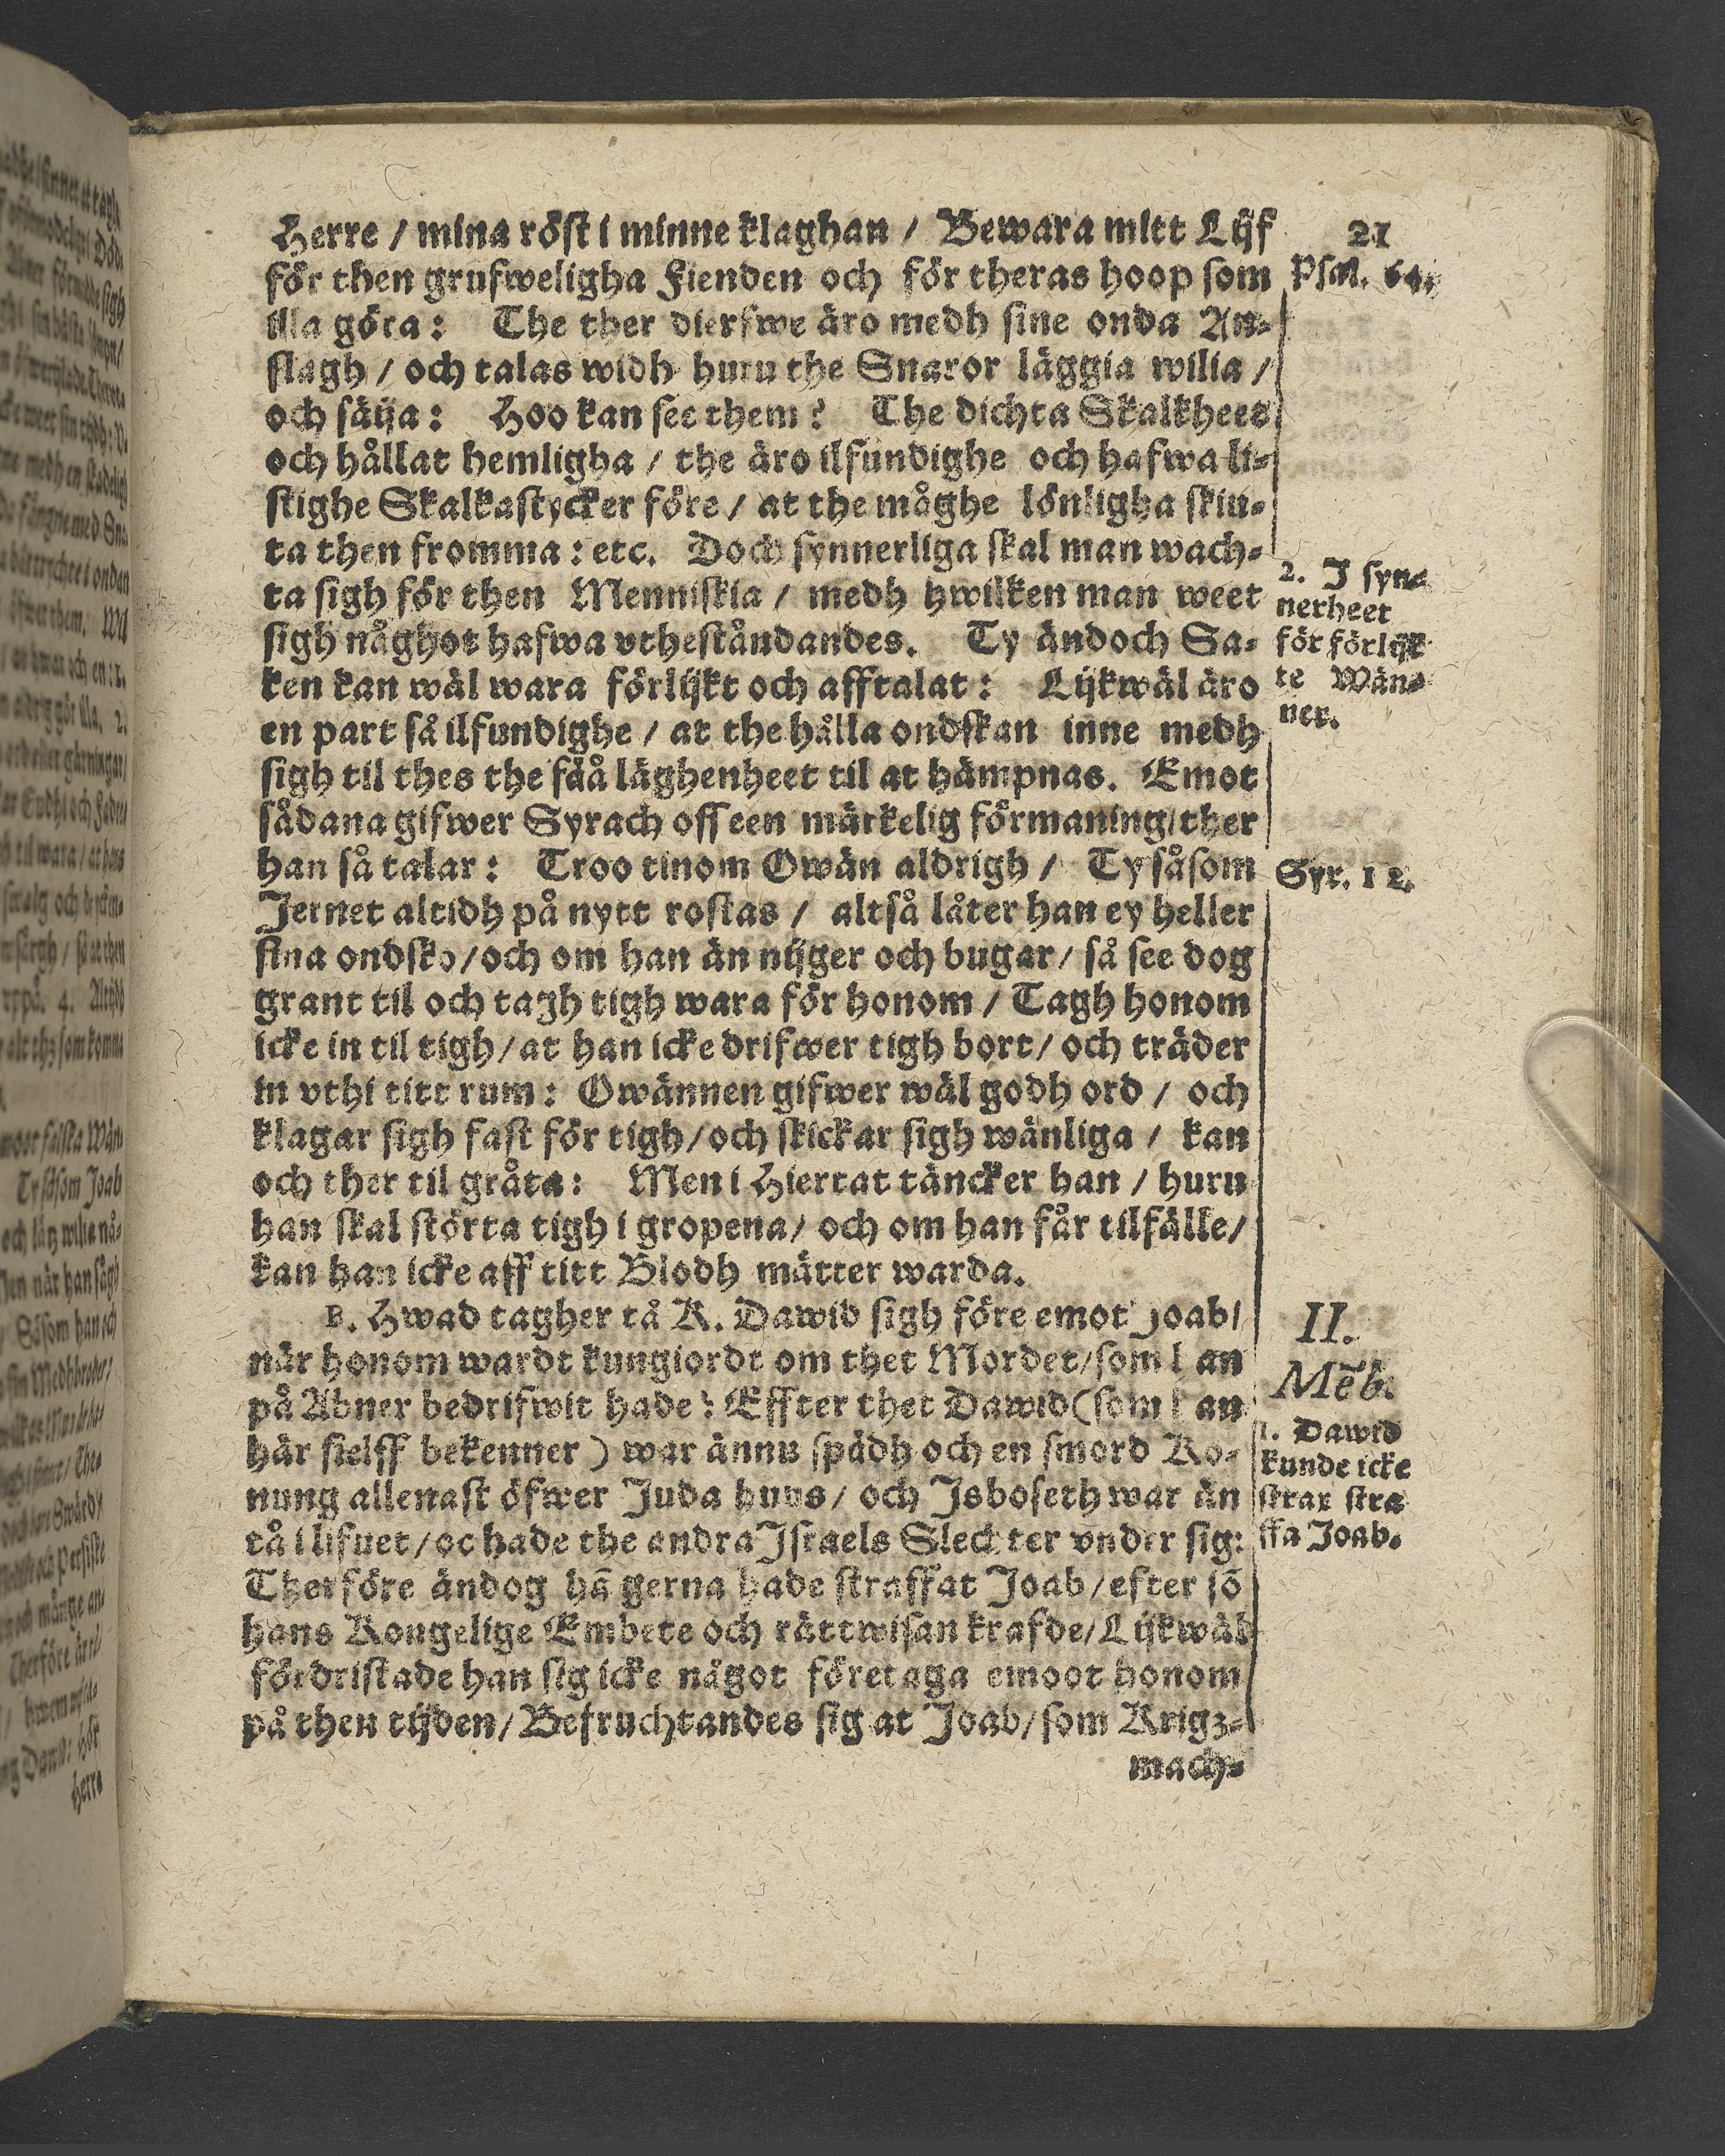 21
Herre / mina röst i minne klaghan / Bewara mitt Lijf
för then grufweligha Fienden och för theras hoop som
illa göra: The ther dierfwe äro medh sine onda An-
slagh / och talas widh huru the Snaror läggia wilia /
och säija: Hoo kan see them? The dichta Skalkheet
och hållat hemligha / the äro ilfundighe och hafwa li-
stighe Skalkastycker före / at the måghe lönligha skiu-
ta then fromma: etc. Doch synnerliga skal man wach-
ta sigh för then Menniskia / medh hwilken man weet
sigh någhot hafwa vtheståndandes. Ty ändoch Sa-
ken kan wäl wara förlijkt och afftalat: Lijkwäl äro
en part så ilfundighe / at the hålla ondskan inne medh
sigh til thes the fåå läghenheet til at hämpnas. Emot
sådana gifwer Syrach oss een märkelig förmaning / ther
han så talar: Troo tinom Owän aldrigh / Ty såsom
Jernet altidh på nytt rostas / altså låter han ey heller
sina ondsko / och om han än nijger och bugar / så see dog
grant til och tagh tigh wara för honom / Tagh honom
icke in til tigh / at han icke drifwer tigh bort / och träder
in vthi titt rum: Owännen gifwer wäl godh ord / och
klagar sigh fast för tigh / och skickar sigh wänliga / kan
och ther til gråta: Men i Hiertat täncker han / huru
han skal störta tigh i gropena / och om han får tilfälle /
kan han icke aff titt Blodh mätter warda.
B. Hwad tagher tå K. Dawid sigh före emot Joab /
när honom wardt kungiordt om thet Mordet / som han
på Abner bedrifwit hade: Effter thet Dawid (som han
här sielff bekenner) war ännu spädh och en smord Ko-
nung allenast öfwer Juda huus / och Isboseth war än
tå i lifuet / oc hade the andra Israels Slechter vnder sig:
Therföre ändog hā gerna hade straffat Joab / efter sō
hans Kongelige Embete och rättwisan krafde / Lijkwäl
fördristade han sig icke något företaga emoot honom
på then tijden / Befruchtandes sig at Joab / som Krigz-
mach-
Psal. 64.
2. I syn-
nerheet
för förlijk
te Wän-
ner.
Syr. 12.
II.
Mēb.
1. Dawid
kunde icke
strax stra
ffa Joab.